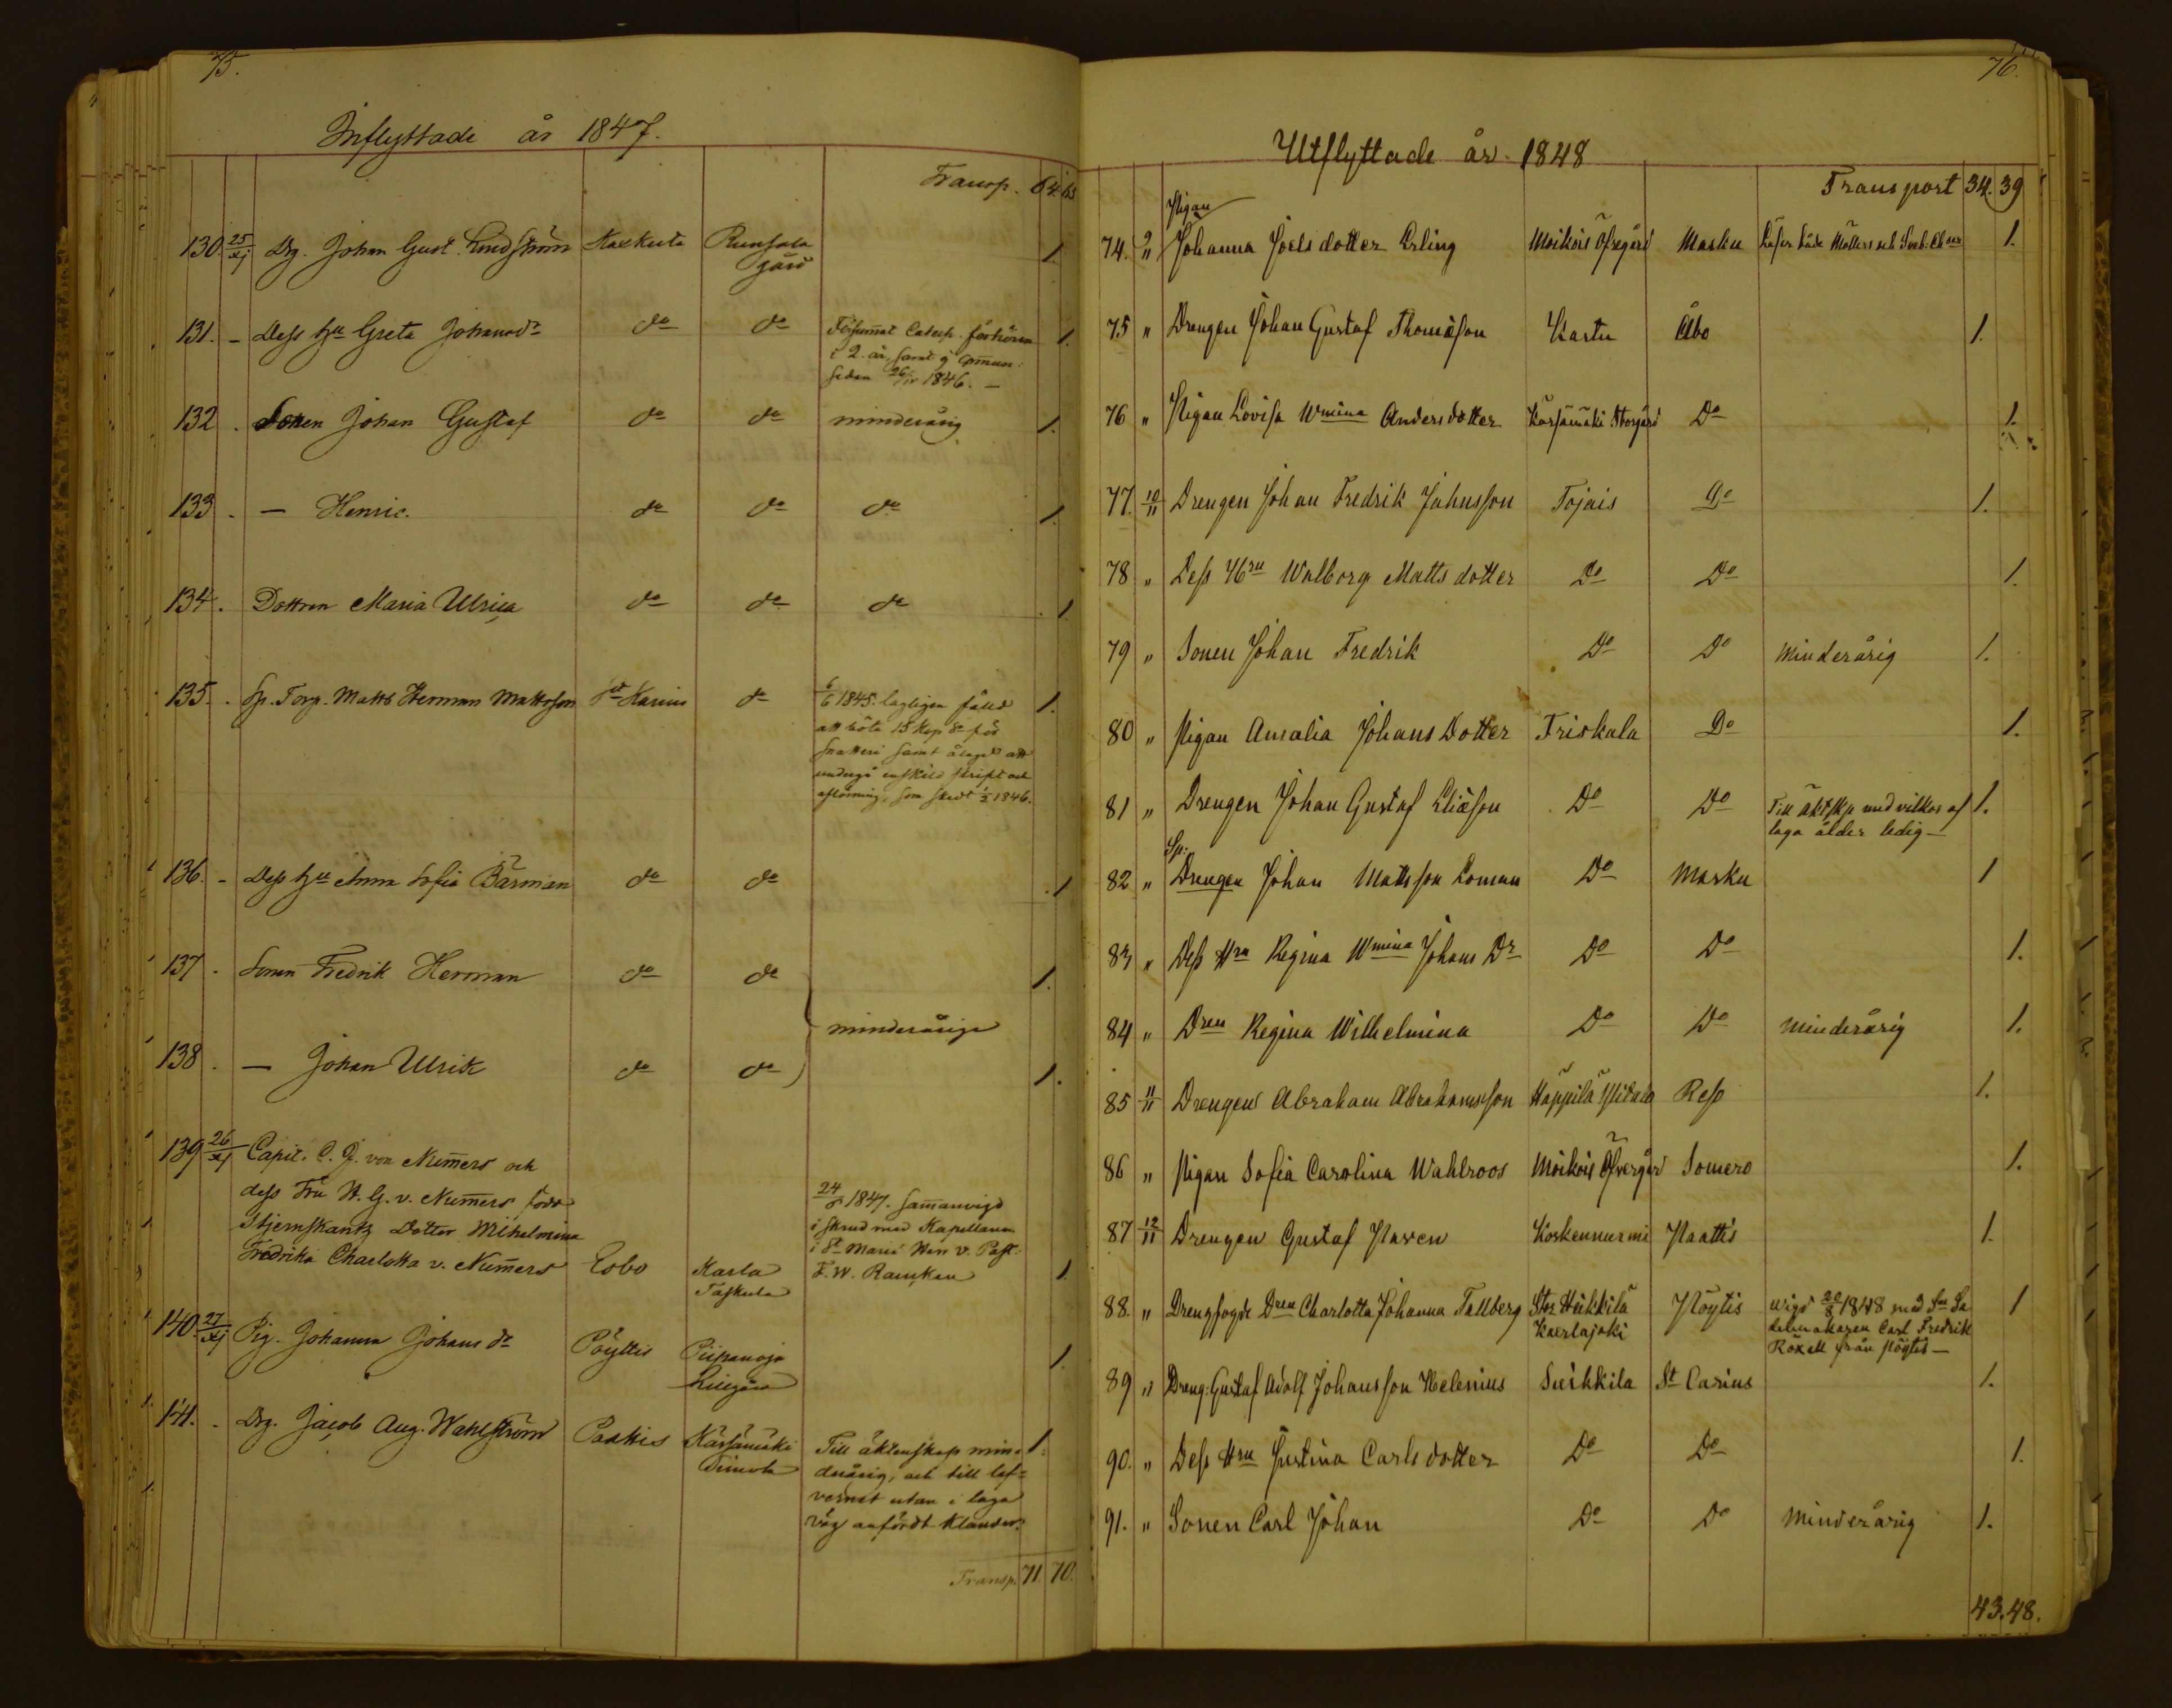 75.
Inflyttade år 1847.
Transp. 64. 65
130. 25/XI Drg. Johan Gust. Lindström Kakkerta Runsala gård 1.
131. - Dess hu Greta Johansdr do do Försummat Catech. förhören 1.
i 2. år, samt ej commun:
sedan 26/IV 1846. -
132. Sonen Johan Gustaf do do minderårig 1.
133. - Henric. do do do 1.
134. Dottren Maria Ulrica do do do 1
135. Sp. Torp. Matts Herman Mattsson St Karins do 6/6 1845. lagligen fälld 1.
att böta 15 kop Sr för
snatteri samt ålagd att
undergå enskild skrift och
aflösning, som skedt 1/2 1846.
136. - Dess hu Anna Sofia Bärman do do 1
137. Sonen Fredrik Herman do do 1.
minderårige
138. - Johan Ulrik do do 1.
139. 26/XI Capit. C. J. von Numers och
dess Fru H. G. v. Numers född
Stjernskantz Dotter Wilhelmina
Fredrika Charlotta v. Numers Esbo Karla Taskula
24/8 1847. sammanvigd
i skrud med Kapellanen
i St Marie Herr v. Past.
F. W. Ramken 1
140. 27/XI Pig. Johanna Johans dr Pöyttis Piipanoja Lillgård 1.
141. Drg. Jacob Aug. Wahlström Pattis Kärsämäki Timola Till äktenskap min- 1.
derårig, och till lef-
vernet utan i laga
väg anfördt klander.
Transp. 71. 70.
76.
Utflyttade år 1848
Transport 34. 39
Pigan
74. 9/11 Johanna Joels dotter Erling Moikois Öfvergård Masku 1.
75 " Drengen Johan Gustaf Thomasson Kastu Åbo 1.
76 " Pigan Lovisa Wmina Andersdotter Kärsämäki Storgård Do 1.
77. 10/11 Drengen Johan Fredrik Johnsson Tojais Do 1.
78 " Dess Hru Walborg Matts dotter Do Do 1.
79 " Sonen Johan Fredrik Do Do Minderårig 1.
80 " Pigan Amalia Johans Dotter Friskala Do 1.
81 " Drengen Johan Gustaf Eliasson Do Do Till äktskp med vilkor af 1.
laga ålder ledig -
Sp:
82 " Drengen Johan Mattsson Loman Do Masku 1
83 " Dess Hru Regina Wmina Johans Dr Do Do 1.
84 " Dren Regina Wilhelmina Do Do Minderårig 1.
85 11/11 Drengen Abraham Abrahamsson Häppilä Ylitalo Reso 1.
86 " Pigan Sofia Carolina Wahlroos Moikois Öfvergård Somero 1.
87 12/11 Drengen Gustaf Paven Koskennurmi Paattis 1.
88. " Drengfogde Dren Charlotta Johanna Tallberg Stor Heikkilä Kaerlajoki Pöytis Wigd 20/8 1848 med Sn Sa 1
delmakaren Carl Fredrik
Röxell från Pöytis -
89 " Dreng: Gustaf Adolf Johansson Helenius Suikkila St Carins 1.
90. " Dess Hru Justina Carls dotter Do Do 1.
91. " Sonen Carl Johan Do Do Minderårig 1.
43. 48.